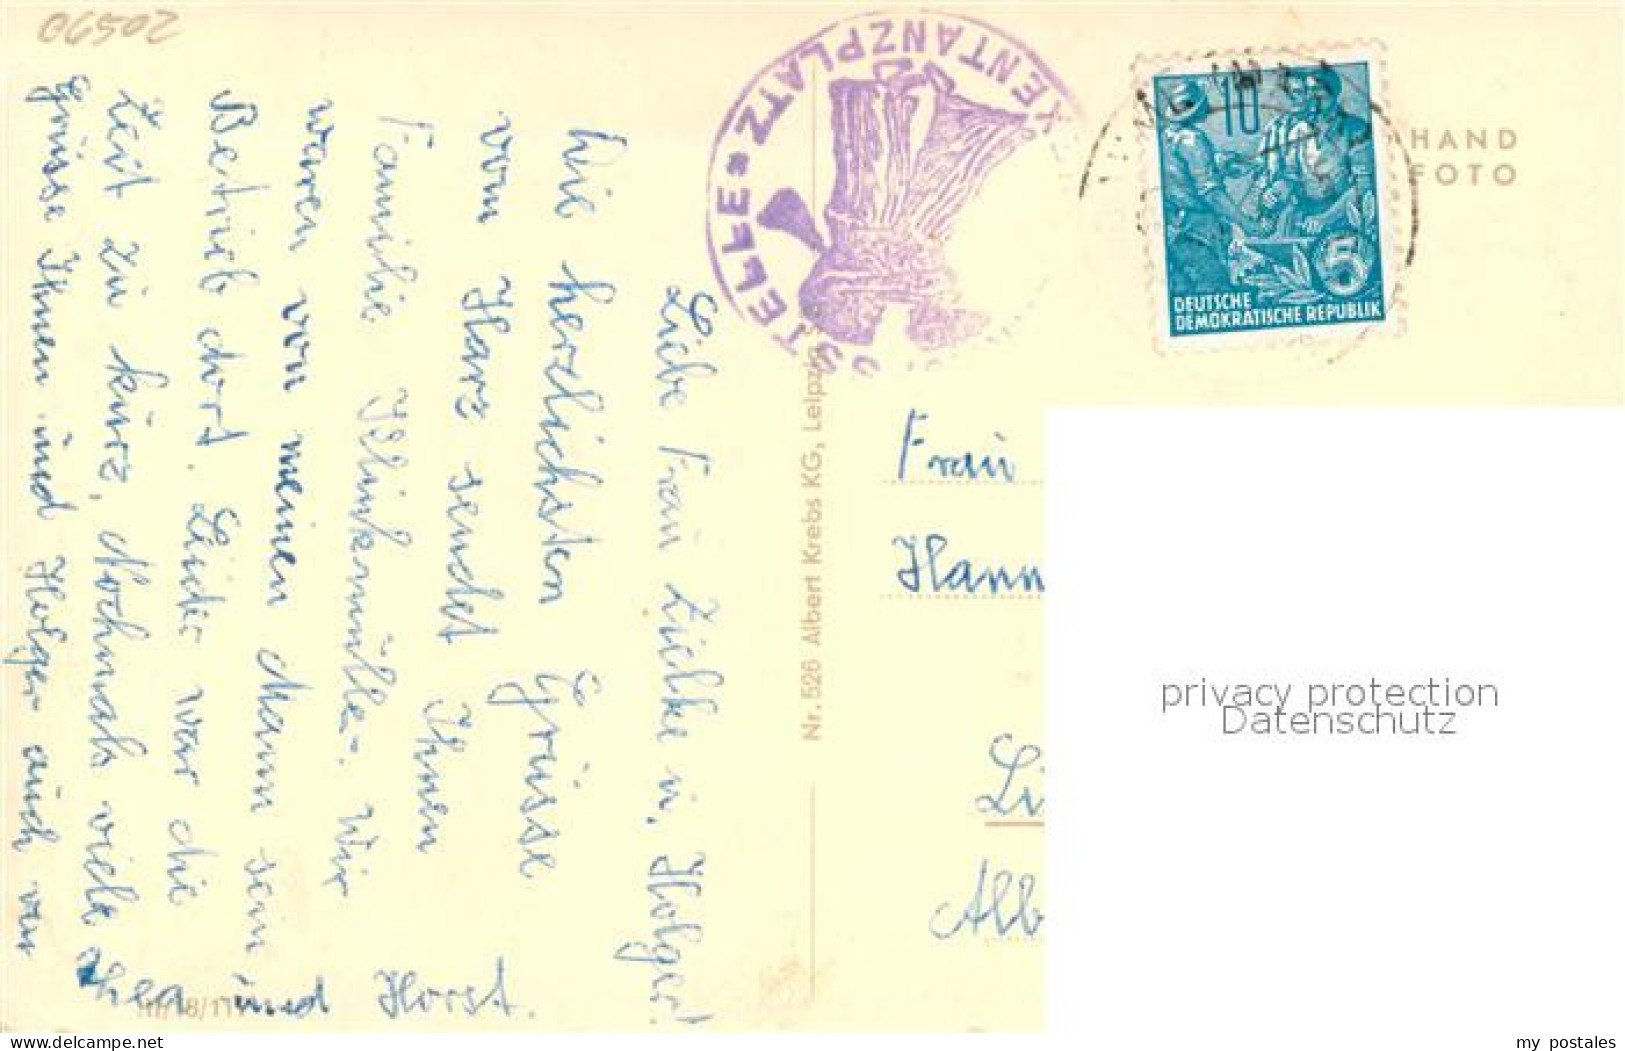 06502
Liebe Frau Zielke u. Holger!
Die herzlichsten Grüsse
vom Harz sendet Ihnen
Familie Klinkmüller. Wir
waren von meinen Mann sein
Betrieb dort. Leider war die
Zeit zu kurz, Nochmals viele
Grüsse Ihnen und Holger auch von
und Horst.
HEXENTANZPLATZ
Nr. 526 Albert Krebs KG, Leipzig
10
5
DEUTSCHE
DEMOKRATISCHE REPUBLIK
HAND
FOTO
Frau
Hann
Li
Alb
privacy protection
Datenschutz
my_postales
www.delcampe.net